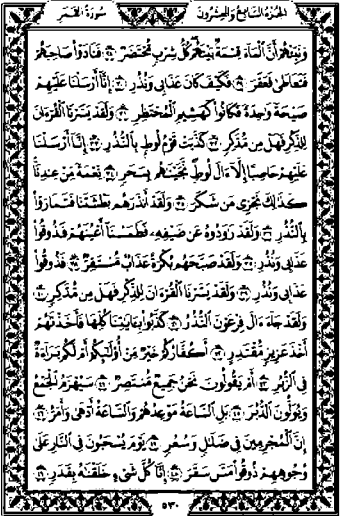 الجزء السابع والعشرون سورة القمر
وَنَبِّئْهُمْ أَنَّ الْمَاءَ قِسْمَةٌ بَيْنَهُمْ كُلُّ شِرْبٍ مُحْتَضَرٌ ﴿٢٨﴾ فَنَادَوْا صَاحِبَهُمْ
فَتَعَاطَى فَعَقَرَ ﴿٢٩﴾ فَكَيْفَ كَانَ عَذَابِي وَنُذُرِ ﴿٣٠﴾ إِنَّا أَرْسَلْنَا عَلَيْهِمْ
صَيْحَةً وَاحِدَةً فَكَانُوا كَهَشِيمِ الْمُحْتَظِرِ ﴿٣١﴾ وَلَقَدْ يَسَّرْنَا الْقُرْآنَ
لِلذِّكْرِ فَهَلْ مِنْ مُدَّكِرٍ ﴿٣٢﴾ كَذَّبَتْ قَوْمُ لُوطٍ بِالنُّذُرِ ﴿٣٣﴾ إِنَّا أَرْسَلْنَا
عَلَيْهِمْ حَاصِبًا إِلَّا آلَ لُوطٍ نَجَّيْنَاهُمْ بِسَحَرٍ ﴿٣٤﴾ نِعْمَةً مِنْ عِنْدِنَا
كَذَلِكَ نَجْزِي مَنْ شَكَرَ ﴿٣٥﴾ وَلَقَدْ أَنْذَرَهُمْ بَطْشَتَنَا فَتَمَارَوْا
بِالنُّذُرِ ﴿٣٦﴾ وَلَقَدْ رَاوَدُوهُ عَنْ ضَيْفِهِ فَطَمَسْنَا أَعْيُنَهُمْ فَذُوقُوا
عَذَابِي وَنُذُرِ ﴿٣٧﴾ وَلَقَدْ صَبَّحَهُمْ بُكْرَةً عَذَابٌ مُسْتَقِرٌّ ﴿٣٨﴾ فَذُوقُوا
عَذَابِي وَنُذُرِ ﴿٣٩﴾ وَلَقَدْ يَسَّرْنَا الْقُرْآنَ لِلذِّكْرِ فَهَلْ مِنْ مُدَّكِرٍ ﴿٤٠﴾
وَلَقَدْ جَاءَ آلَ فِرْعَوْنَ النُّذُرُ ﴿٤١﴾ كَذَّبُوا بِآيَاتِنَا كُلِّهَا فَأَخَذْنَاهُمْ
أَخْذَ عَزِيزٍ مُقْتَدِرٍ ﴿٤٢﴾ أَكُفَّارُكُمْ خَيْرٌ مِنْ أُولَئِكُمْ أَمْ لَكُمْ بَرَاءَةٌ
فِي الزُّبُرِ ﴿٤٣﴾ أَمْ يَقُولُونَ نَحْنُ جَمِيعٌ مُنْتَصِرٌ ﴿٤٤﴾ سَيُهْزَمُ الْجَمْعُ
وَيُوَلُّونَ الدُّبُرَ ﴿٤٥﴾ بَلِ السَّاعَةُ مَوْعِدُهُمْ وَالسَّاعَةُ أَدْهَى وَأَمَرُّ ﴿٤٦﴾
إِنَّ الْمُجْرِمِينَ فِي ضَلَالٍ وَسُعُرٍ ﴿٤٧﴾ يَوْمَ يُسْحَبُونَ فِي النَّارِ عَلَى
وُجُوهِهِمْ ذُوقُوا مَسَّ سَقَرَ ﴿٤٨﴾ إِنَّا كُلَّ شَيْءٍ خَلَقْنَاهُ بِقَدَرٍ ﴿٤٩﴾
٥٣٠